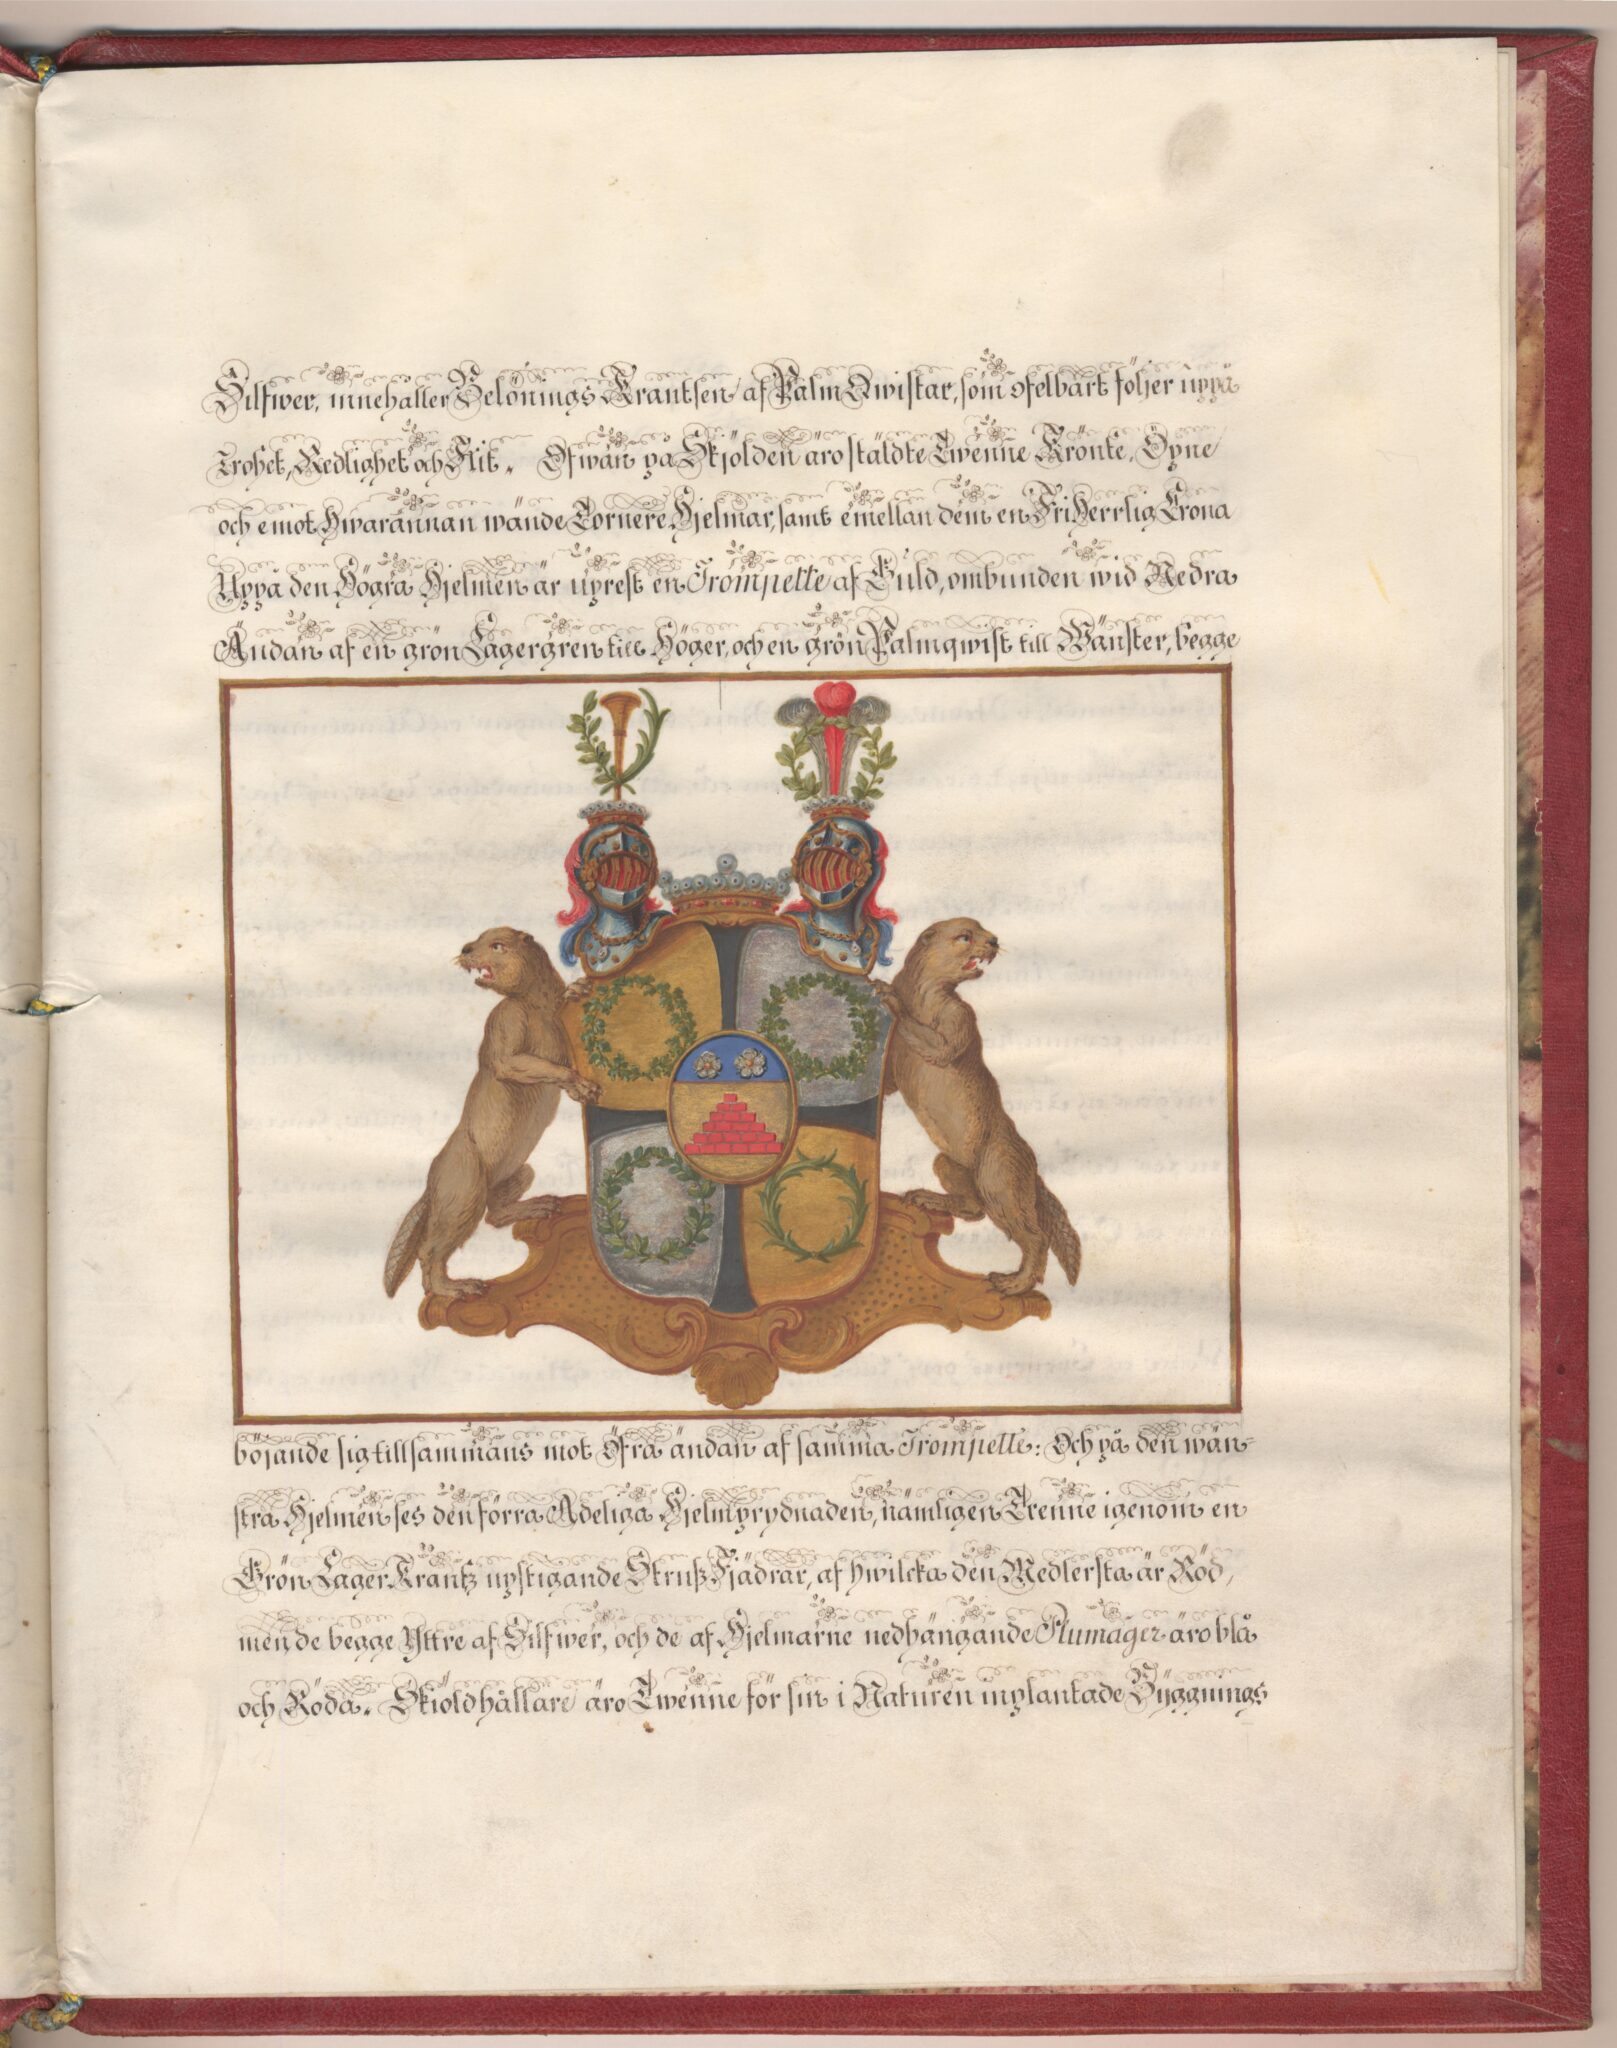 Silfwer, innehåller Belönings Krantsen af Palm Qwistar, som ofelbart följer uppå
Trohet, Redlighet och Flit. Ofwan på Skjölden äro stäldte Twenne Krönte, Öpne
och emot hwarannan wände Tornere Hjelmar, samt emellan dem en FriHerrlig Crona
Uppå den Högra Hjelmen är uprest en Trompette af Guld, ombunden wid Nedra
Ändan af en grön Lagergren till Höger, och en grön Palmqwist till Wänster, begge
böjande sig tillsammans mot Öfra ändan af samma Trompette: Och på den wän-
stra Hjelmen ses den förra Adeliga Hjelmprydnaden, nämligen Trenne igenom en
Grön Lager Krantz upstigande StrußFjädrar, af hwilcka den Medlersta är Röd,
men de begge Yttre af Silfwer, och de af Hjelmarne nedhängande Plumager äro blå
och Röda. Skiöldhållare äro Twenne för sin i Naturen inplantade Byggnings